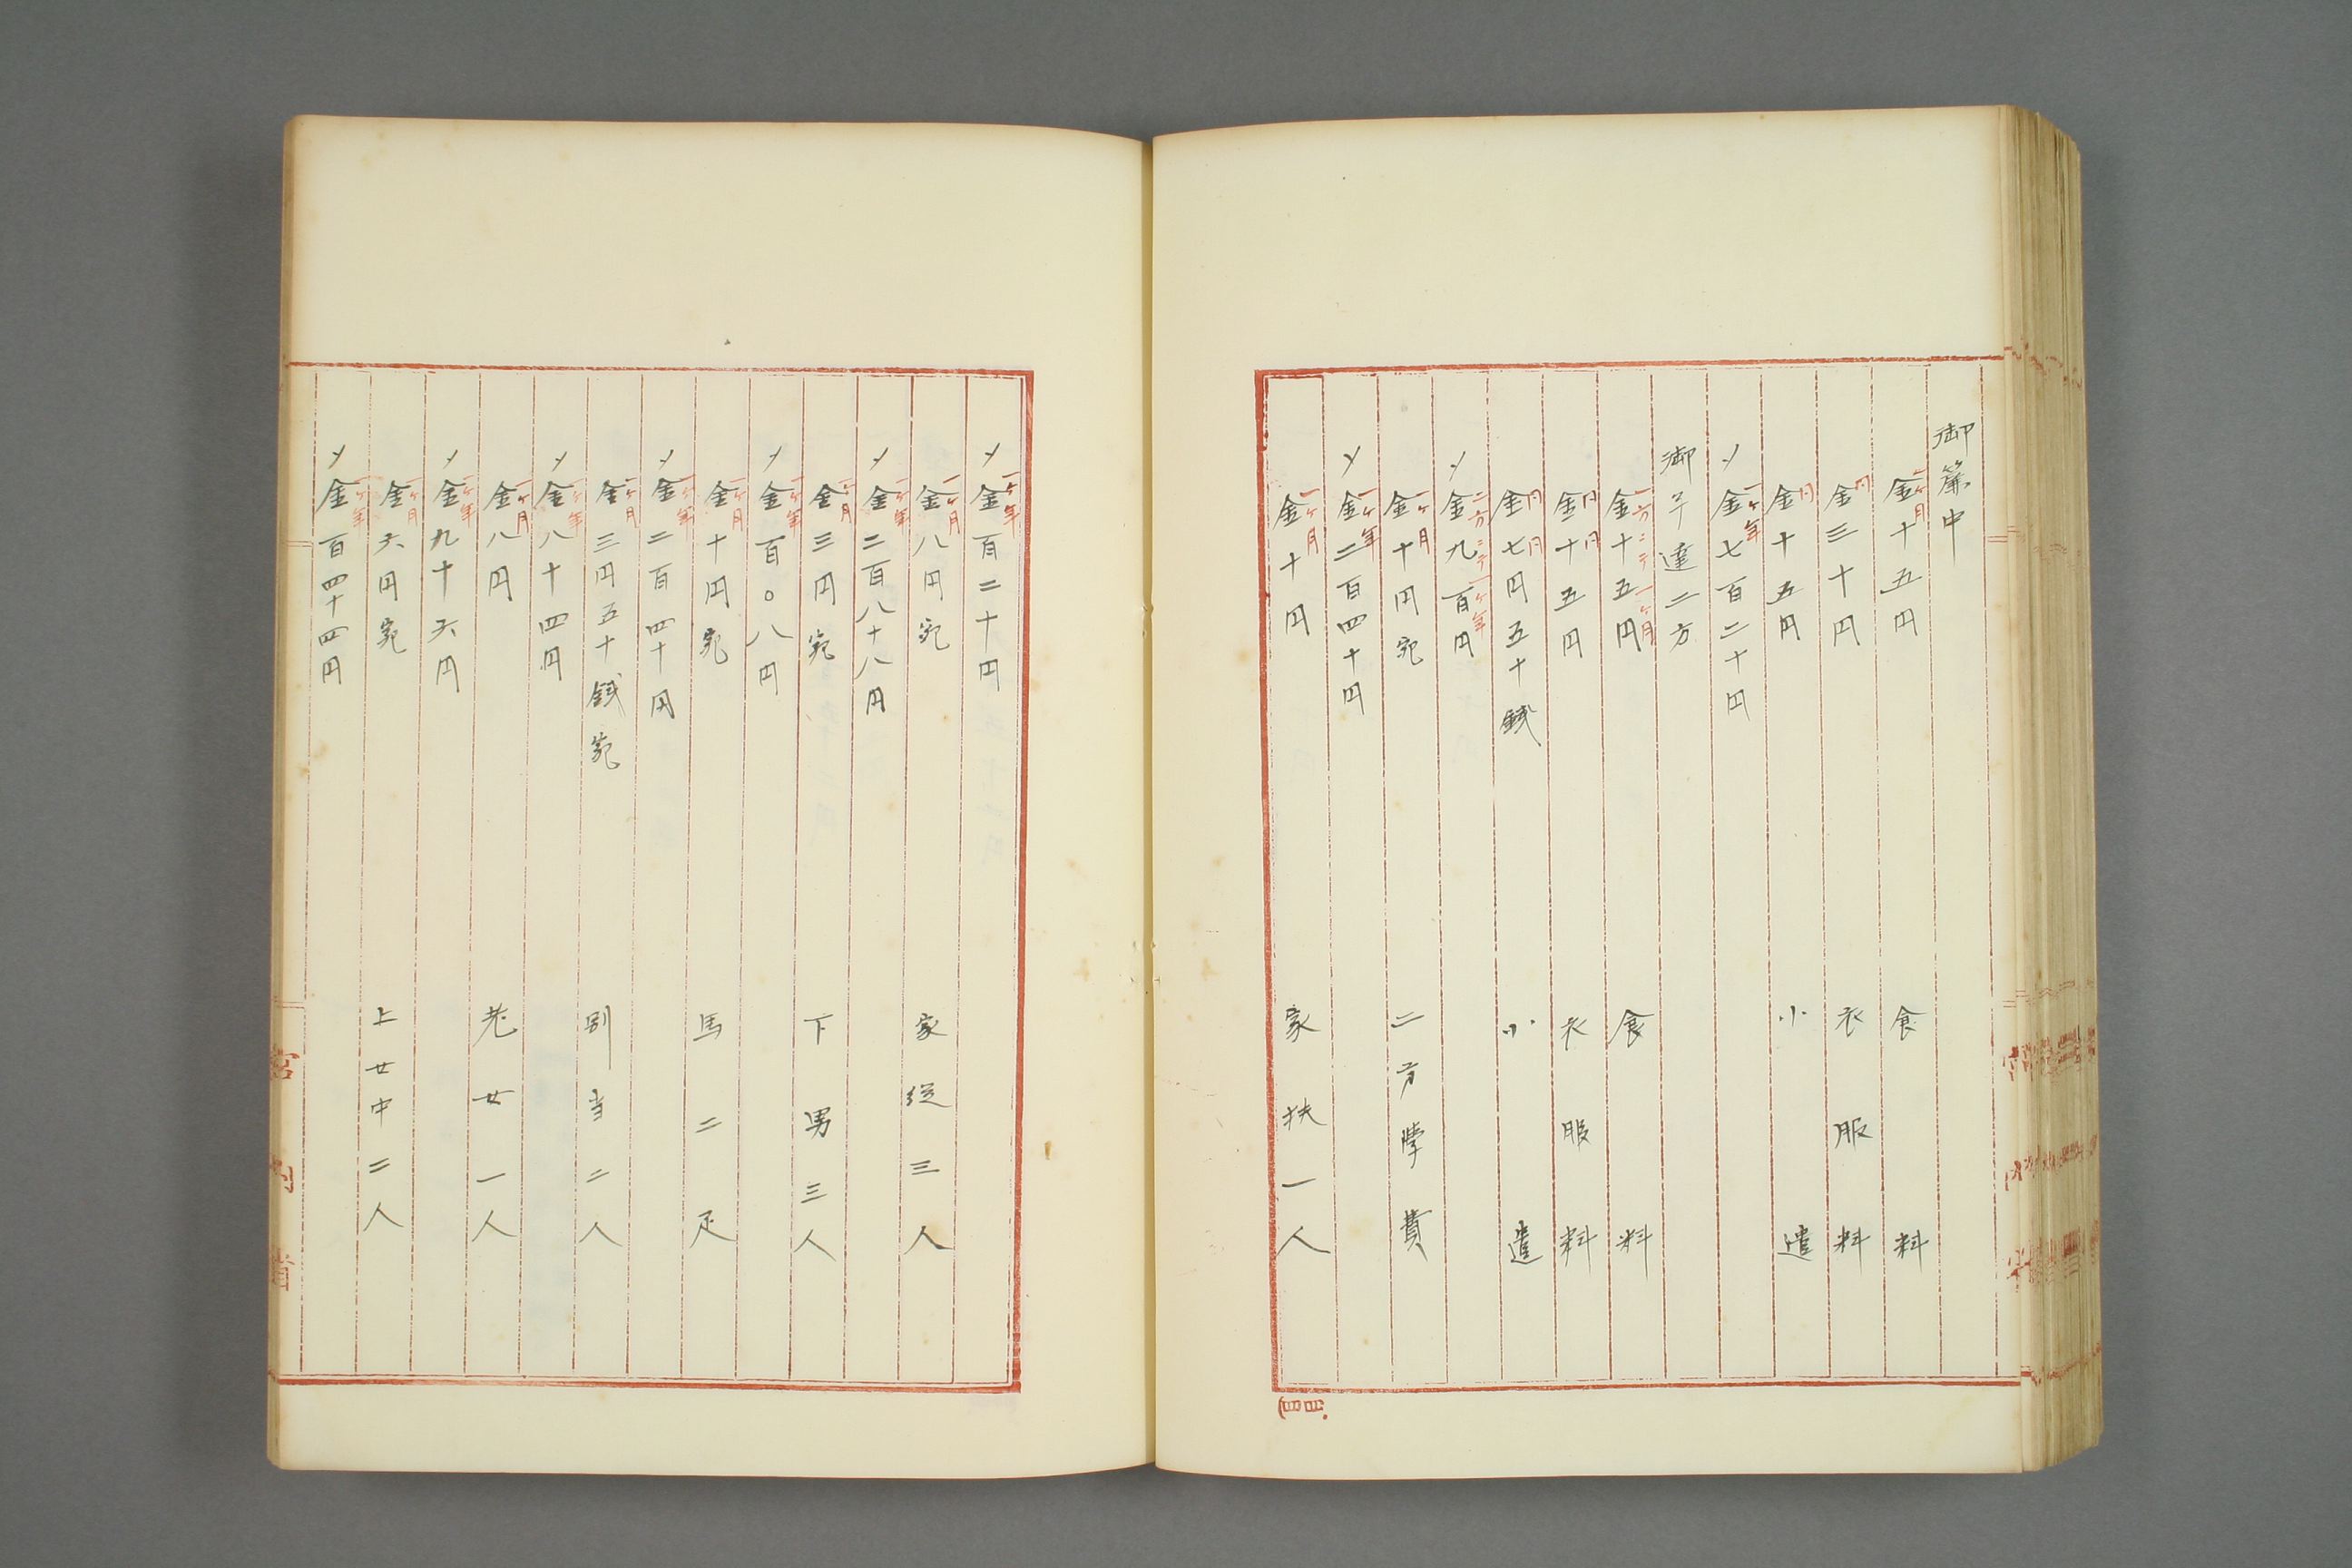 御簾中
一ケ月
金十五円　食料
同
金三十円　衣服料
同
金十五円　小遣
一ケ年
〆金七百二十円
御子達二方
一方ニテ一ケ月
金十五円　食料
同
金十五円　衣服料
同
金七円五十銭　小遣
二方ニテ一ケ年
〆金九百円
一ケ月
金十円宛　二方学費
一ケ年
〆金二百四十円
一ケ月
金十円　家扶一人
一ケ年
〆金百二十円
一ケ月
金八円宛　家従三人
一ケ年
〆金二百八十八円
一ケ月
金三円宛　下男三人
一ケ年
〆金百〇八円
一ケ月
金十円宛　馬二疋
一ケ年
〆金二百四十円
一ケ月
金三円五十銭宛　別当二人
一ケ年
〆金八十四円
一ケ月
金八円　老女一人
一ケ年
〆金九十六円
一ケ月
金六円宛　上女中二人
一ケ年
〆金百四十四円
宮内省